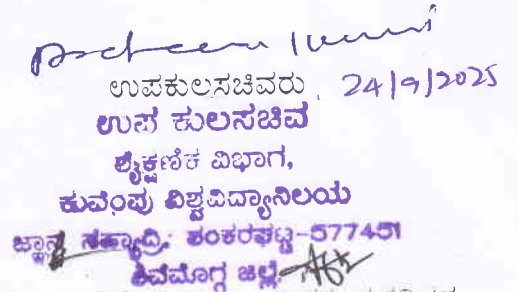 ಉಪಕುಲಸಚಿವರು, 24/9/2025
ಉಪ ಕುಲಸಚಿವ
ಶೈಕ್ಷಣಿಕ ವಿಭಾಗ,
ಕುವೆಂಪು ವಿಶ್ವವಿದ್ಯಾನಿಲಯ
ಜ್ಞಾನ ಸಹ್ಯಾದ್ರಿ, ಶಂಕರಘಟ್ಟ-577451
ಶಿವಮೊಗ್ಗ ಜಿಲ್ಲೆ